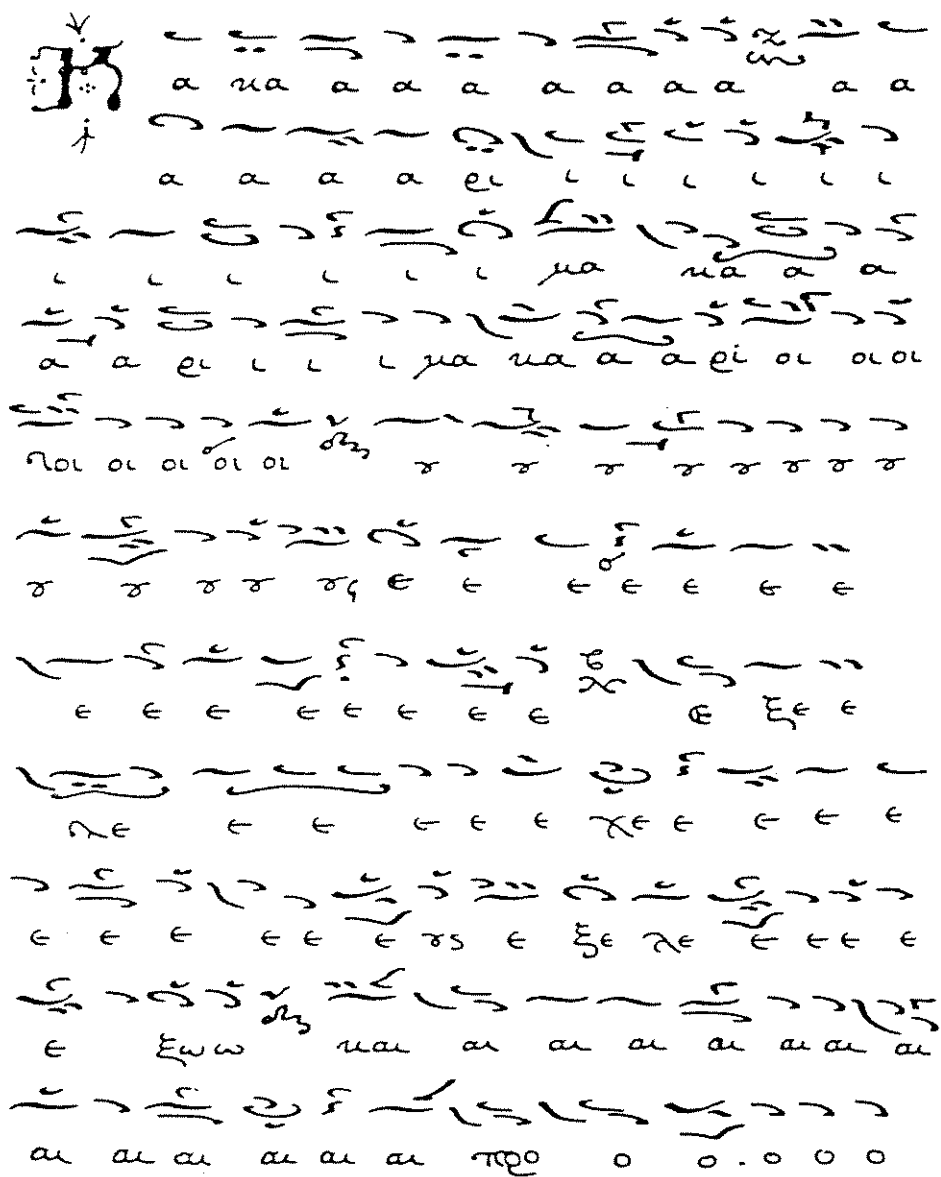 Μ α κα α α α α α α α α α
α α α α ρι ι ι ι ι ι ι
ι ι ι ι ι ι μα κα α α
α α ρι ι ι ι μα κα α α ρι οι οι οι
οι οι οι οι ȣ ȣ ȣ ȣ ȣ ȣ ȣ ȣ
ȣ ȣ ȣ ȣ ȣς ε ε ε ε ε ε ε
ε ε ε ε ε ε ε ε ε ξε ε
λε ε ε ε ε ε χε ε ε ε ε
ε ε ε ε ε ε ȣς ε ξε λε ε ε ε ε
ε ξω ω και αι αι αι αι αι αι αι
αι αι αι αι αι αι προ ο ο . ο ο ο